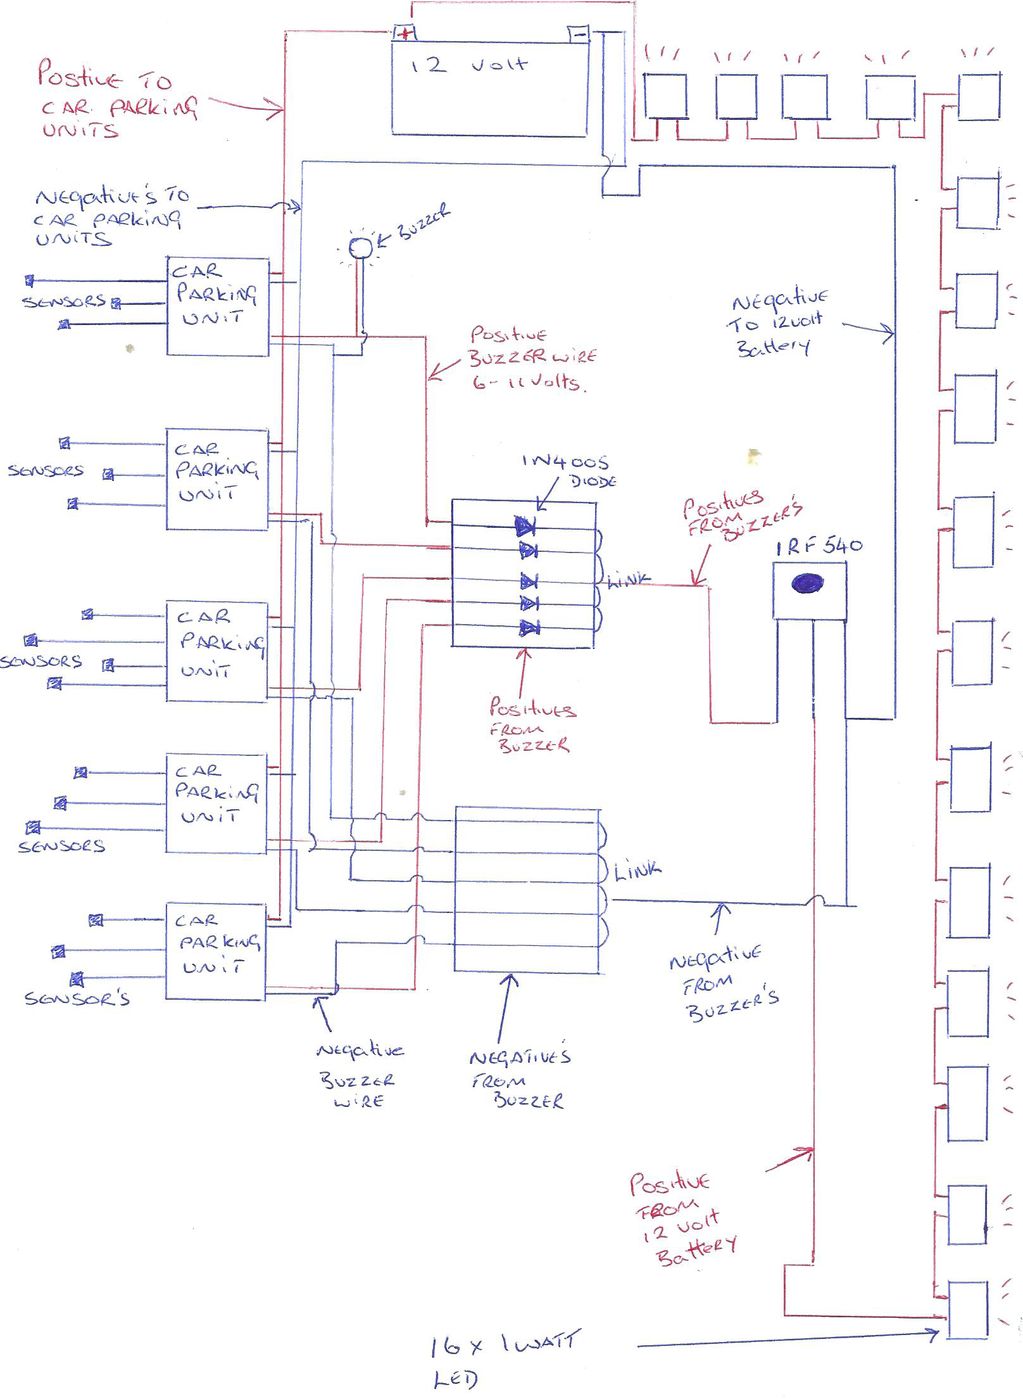 +
-
12 volt
Postive To
CAR PARKING
UNITS
NEgative's TO
CAR PARKING
UNITS
BUZZER
CAR
PARKING
UNIT
SENSORS
NEgative
TO 12volt
Battery
Positive
BUZZER WIRE
6-11 Volts.
CAR
PARKING
UNIT
SENSORS
1N4005
DIODE
Positives
FROM
BUZZER'S
IRF540
LINK
CAR
PARKING
UNIT
SENSORS
Positives
FROM
BUZZER
CAR
PARKING
UNIT
SENSORS
LINK
CAR
PARKING
UNIT
SENSOR'S
NEgative
FROM
BUZZER'S
NEgative
BUZZER
WIRE
NEGATIVE'S
FROM
BUZZER
Positive
FROM
12 volt
Battery
16 x 1 WATT
LED